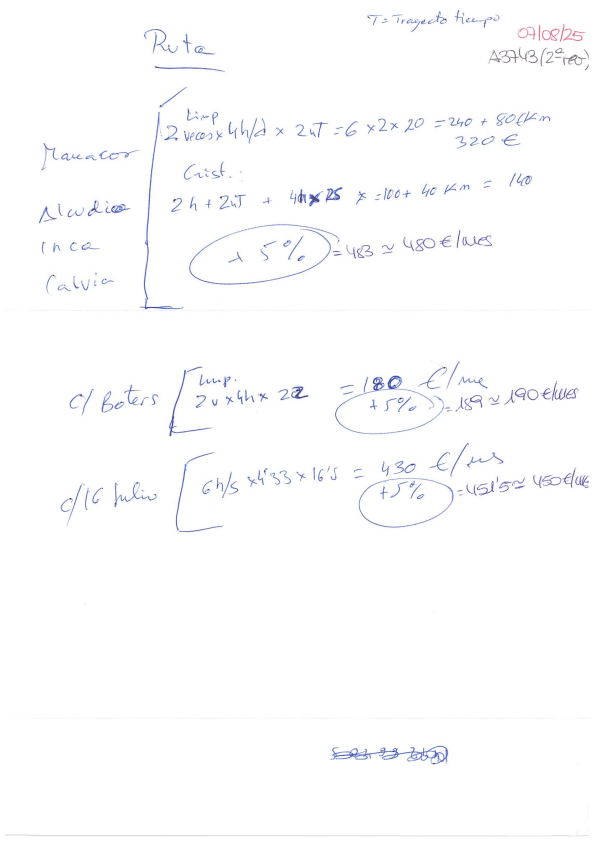 T = Trayecto tiempo
07/08/25
Ruta
A3743 (2ª rev)
Limp
2 veces x 4h/d x 2uT = 6 x 2 x 20 = 240 + 80€ Km
320 €
Manacor
Crist.:
2h + 2uT + 4h x 25 x = 100 + 40 Km = 140
Alcudia
Inca
+ 5% = 483 ≃ 480 €/mes
Calvia
Limp.
c/ Boters 2v x 4h x 22 = 180 €/me
+5% = 189 ≃ 190 €/mes
c/16 Julio 6h/s x 4'33 x 16's = 430 €/ms
+5% = 451'5 ≃ 450 €/me